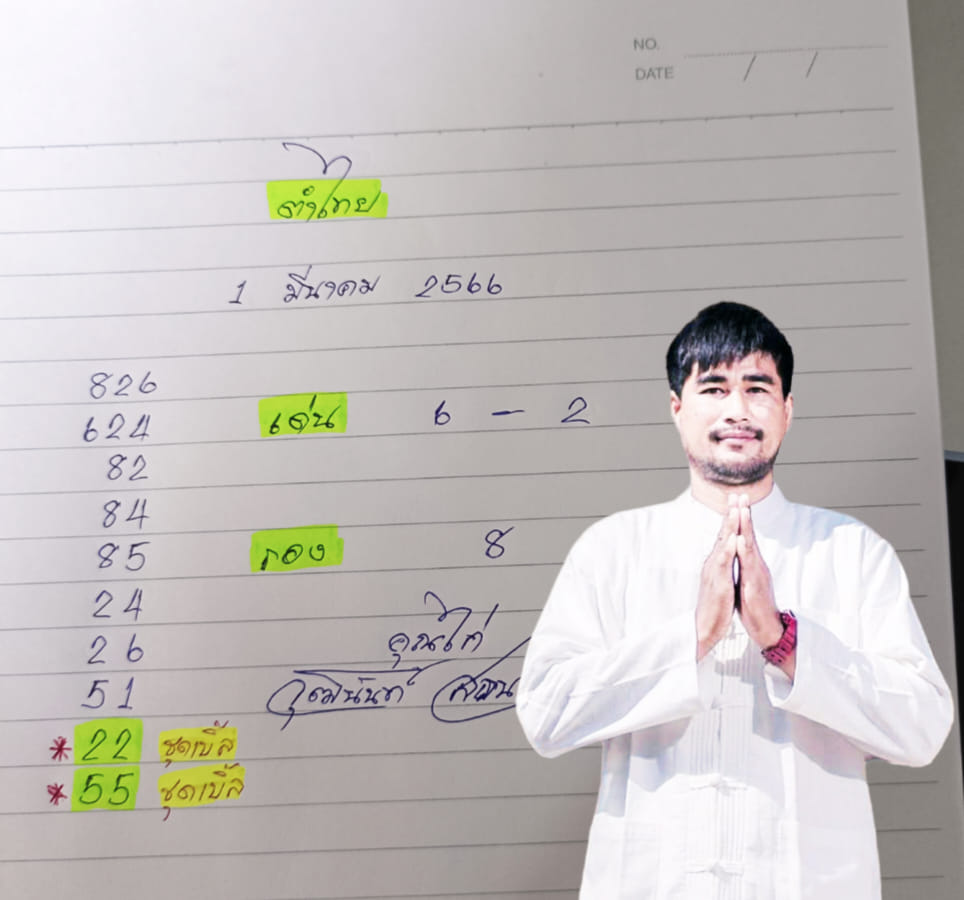 NO.
DATE / /
ตำไทย
1 มีนาคม 2566
826
624 เด่น 6 - 2
82
84
85 รอง 8
24
26 คุณไก่
51
* 22 ชุดเบิ้ล
* 55 ชุดเบิ้ล